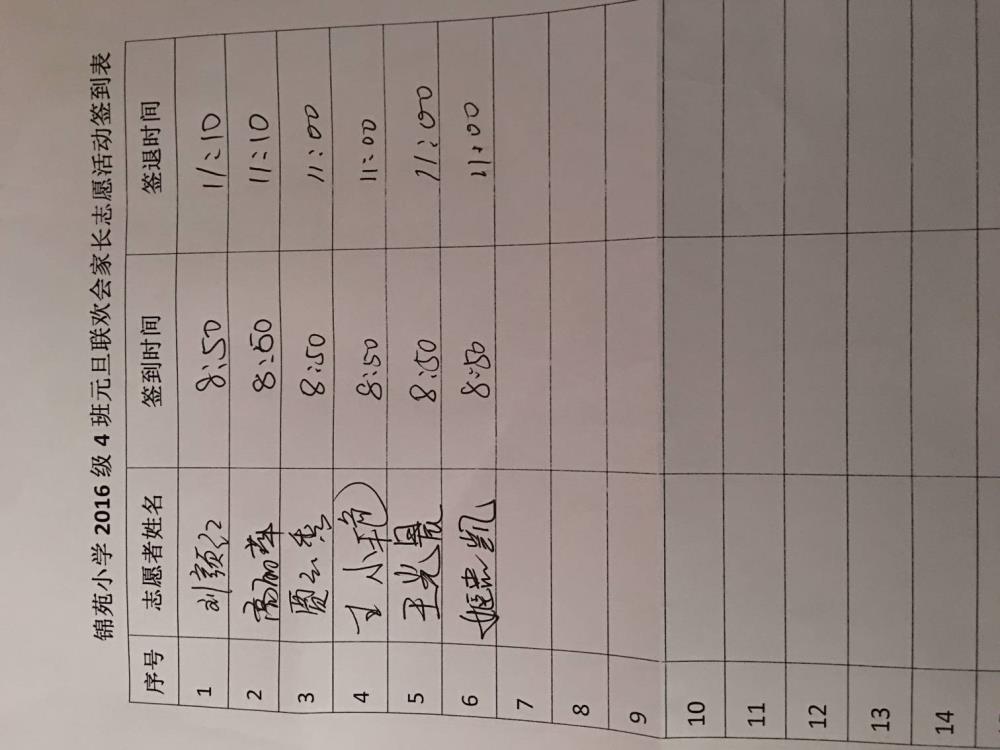 锦苑小学 2016 级 4 班元旦联欢会家长志愿活动签到表
序号 志愿者姓名 签到时间 签退时间
1 刘颖红 8:50 11:10
2 高丽苹 8:50 11:10
3 8:50 11:00
4 王小艳 8:50 11:00
5 王光星 8:50 11:00
6 姬忠凯 8:50 11:00
7
8
9
10
11
12
13
14